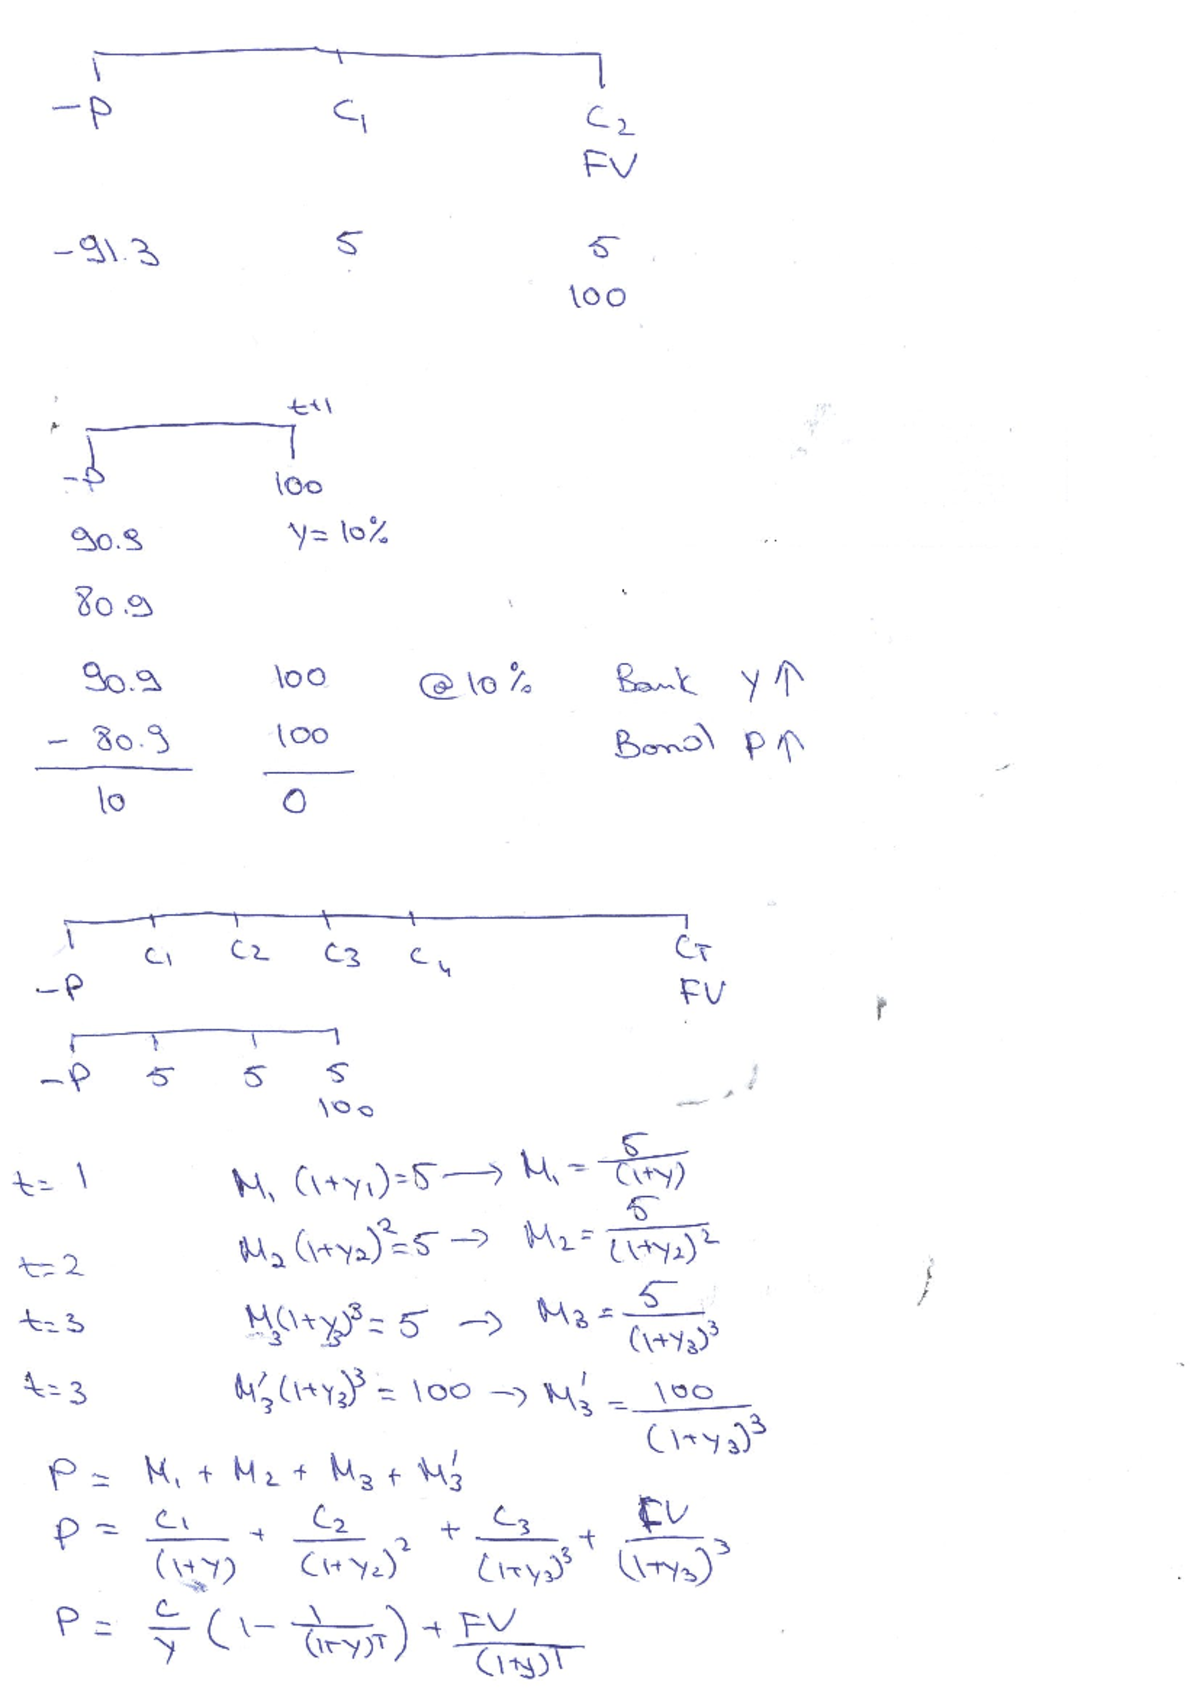 -P C₁ C₂
FV
-91.3 5 5
100
t+1
-P 100
90.9 y=10%
80.9
90.9 100 @10% Bank y↑
- 80.9 100 Bond P↑
10 0
-P C₁ C₂ C₃ C₄ C_T
FV
-P 5 5 5
100
t=1 M₁ (1+y₁)=5 → M₁ = 5/(1+y)
t=2 M₂ (1+y₂)²=5 → M₂ = 5/(1+y₂)²
t=3 M₃(1+y₃)³=5 → M₃ = 5/(1+y₃)³
t=3 M₃'(1+y₃)³ = 100 → M₃' = 100/(1+y₃)³
P = M₁ + M₂ + M₃ + M₃'
P = C₁/(1+y) + C₂/(1+y₂)² + C₃/(1+y₃)³ + FV/(1+y₃)³
P = C/y (1 - 1/(1+y)^T) + FV/(1+y)^T